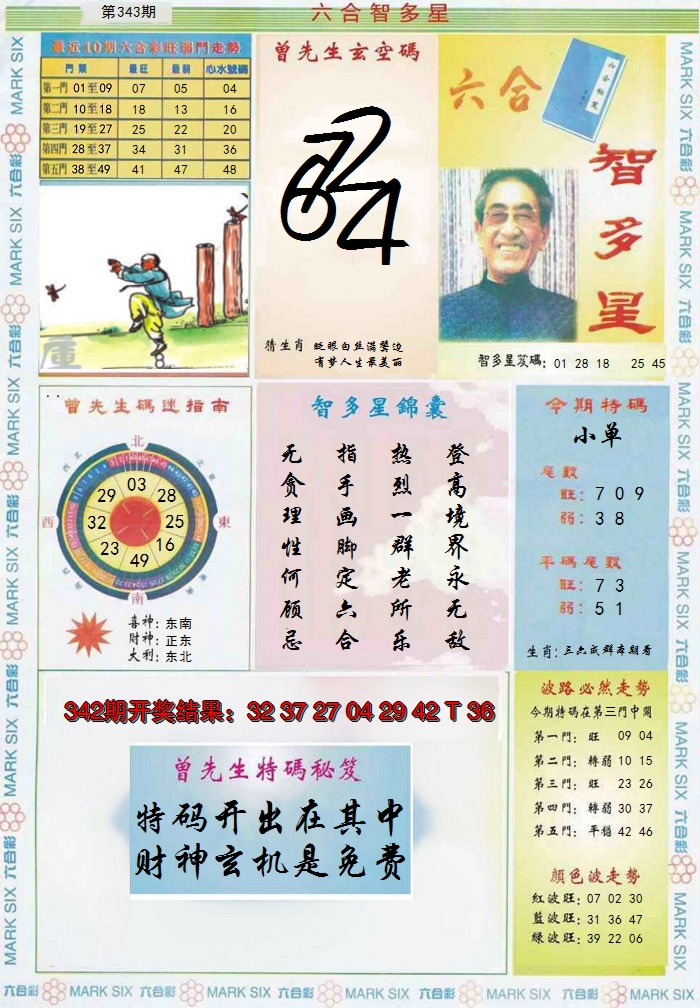 第343期
六合智多星
最近10期六合彩旺弱門走勢
門類 最旺 最弱 心水號碼
第一門 01至09 07 05 04
第二門 10至18 18 13 16
第三門 19至27 25 22 20
第四門 28至37 34 31 36
第五門 38至49 41 47 48
曾先生玄空碼
猜生肖
眨眼白丝满鬓边
有梦人生最美丽
六合
智多星
智多星笈碼: 01 28 18 25 45
曾先生碼迷指南
北
西
東
南
03
28
25
16
49
23
32
29
喜神: 东南
财神: 正东
大利: 东北
智多星錦囊
登高境界永无敌
热烈一群老所乐
指手画脚定六合
无贪理性何顾忌
今期特碼
小单
尾數
旺: 7 0 9
弱: 3 8
平碼尾數
旺: 7 3
弱: 5 1
生肖: 三六成群本期看
342期开奖结果: 32 37 27 04 29 42 T 36
曾先生特碼秘笈
特码开出在其中
财神玄机是免费
波路必然走勢
今期特碼在第三門中開
第一門: 旺 09 04
第二門: 轉弱 10 15
第三門: 旺 23 26
第四門: 轉弱 30 37
第五門: 平穩 42 46
顏色波走勢
紅波旺: 07 02 30
藍波旺: 31 36 47
綠波旺: 39 22 06
MARK SIX 六合彩